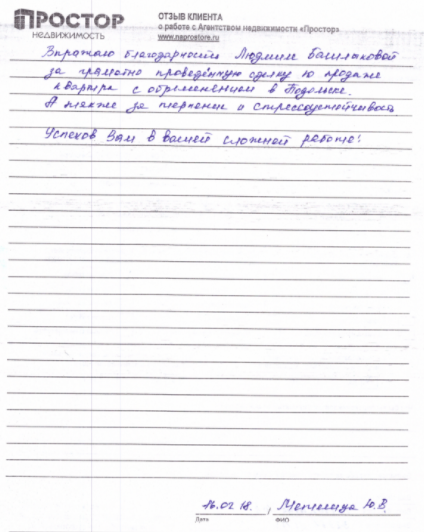 ПРОСТОР
НЕДВИЖИМОСТЬ
ОТЗЫВ КЛИЕНТА
о работе с Агентством недвижимости «Простор»
www.naprostore.ru
Выражаю благодарность Людмиле
за грамотно проведённую сделку по продаже
квартиры с обременением в Подольске.
А также за терпение и стрессоустойчивость
Успехов Вам в вашей сложной работе!
16.02 18. , Метелица Ю.В.
Дата ФИО